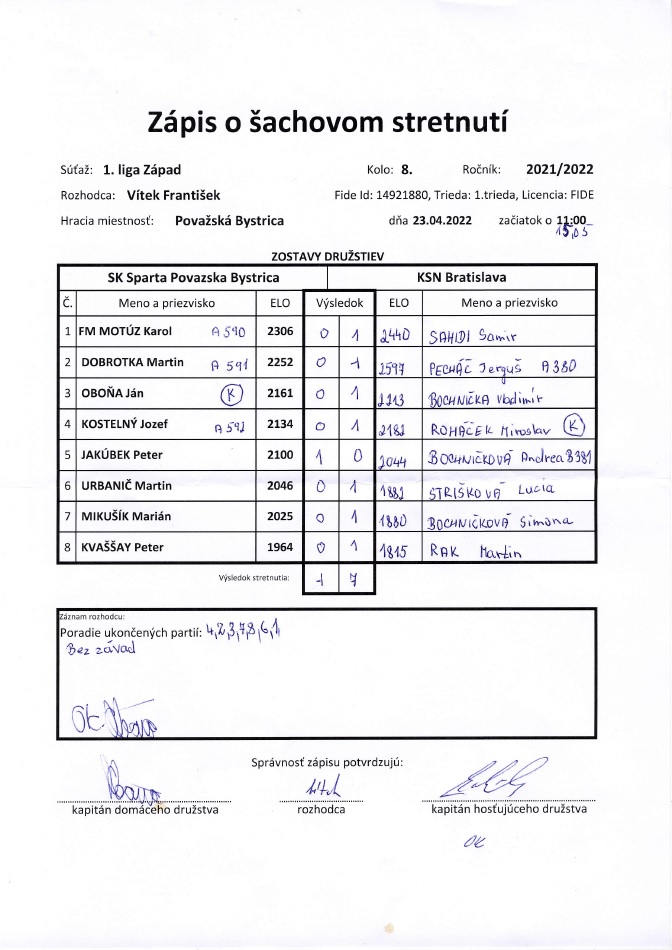 Zápis o šachovom stretnutí
Súťaž: 1. liga Západ Kolo: 8. Ročník: 2021/2022
Rozhodca: Vítek František Fide Id: 14921880, Trieda: 1.trieda, Licencia: FIDE
Hracia miestnosť: Považská Bystrica dňa 23.04.2022 začiatok o 11:00
15,05
ZOSTAVY DRUŽSTIEV
SK Sparta Povazska Bystrica KSN Bratislava
Č. Meno a priezvisko ELO Výsledok ELO Meno a priezvisko
1 FM MOTÚZ Karol A 590 2306 0 1 2440 SAHIDI Samir
2 DOBROTKA Martin A 591 2252 0 1 2597 PECHÁČ Jerguš A380
3 OBOŇA Ján K 2161 0 1 2213 BOCHNIČKA Vladimír
4 KOSTELNÝ Jozef A592 2134 0 1 2182 ROHÁČEK Miroslav K
5 JAKÚBEK Peter 2100 1 0 2044 BOCHNIČKOVÁ Andrea B381
6 URBANIČ Martin 2046 0 1 1882 STRIŠKOVÁ Lucia
7 MIKUŠÍK Marián 2025 0 1 1880 BOCHNIČKOVÁ Simona
8 KVAŠŠAY Peter 1964 0 1 1815 RAK Martin
Výsledok stretnutia: 1 7
Záznam rozhodcu:
Poradie ukončených partií: 4,2,3,7,8,6,1
Bez závad
Ok
Správnosť zápisu potvrdzujú:
kapitán domáceho družstva rozhodca kapitán hosťujúceho družstva
OK